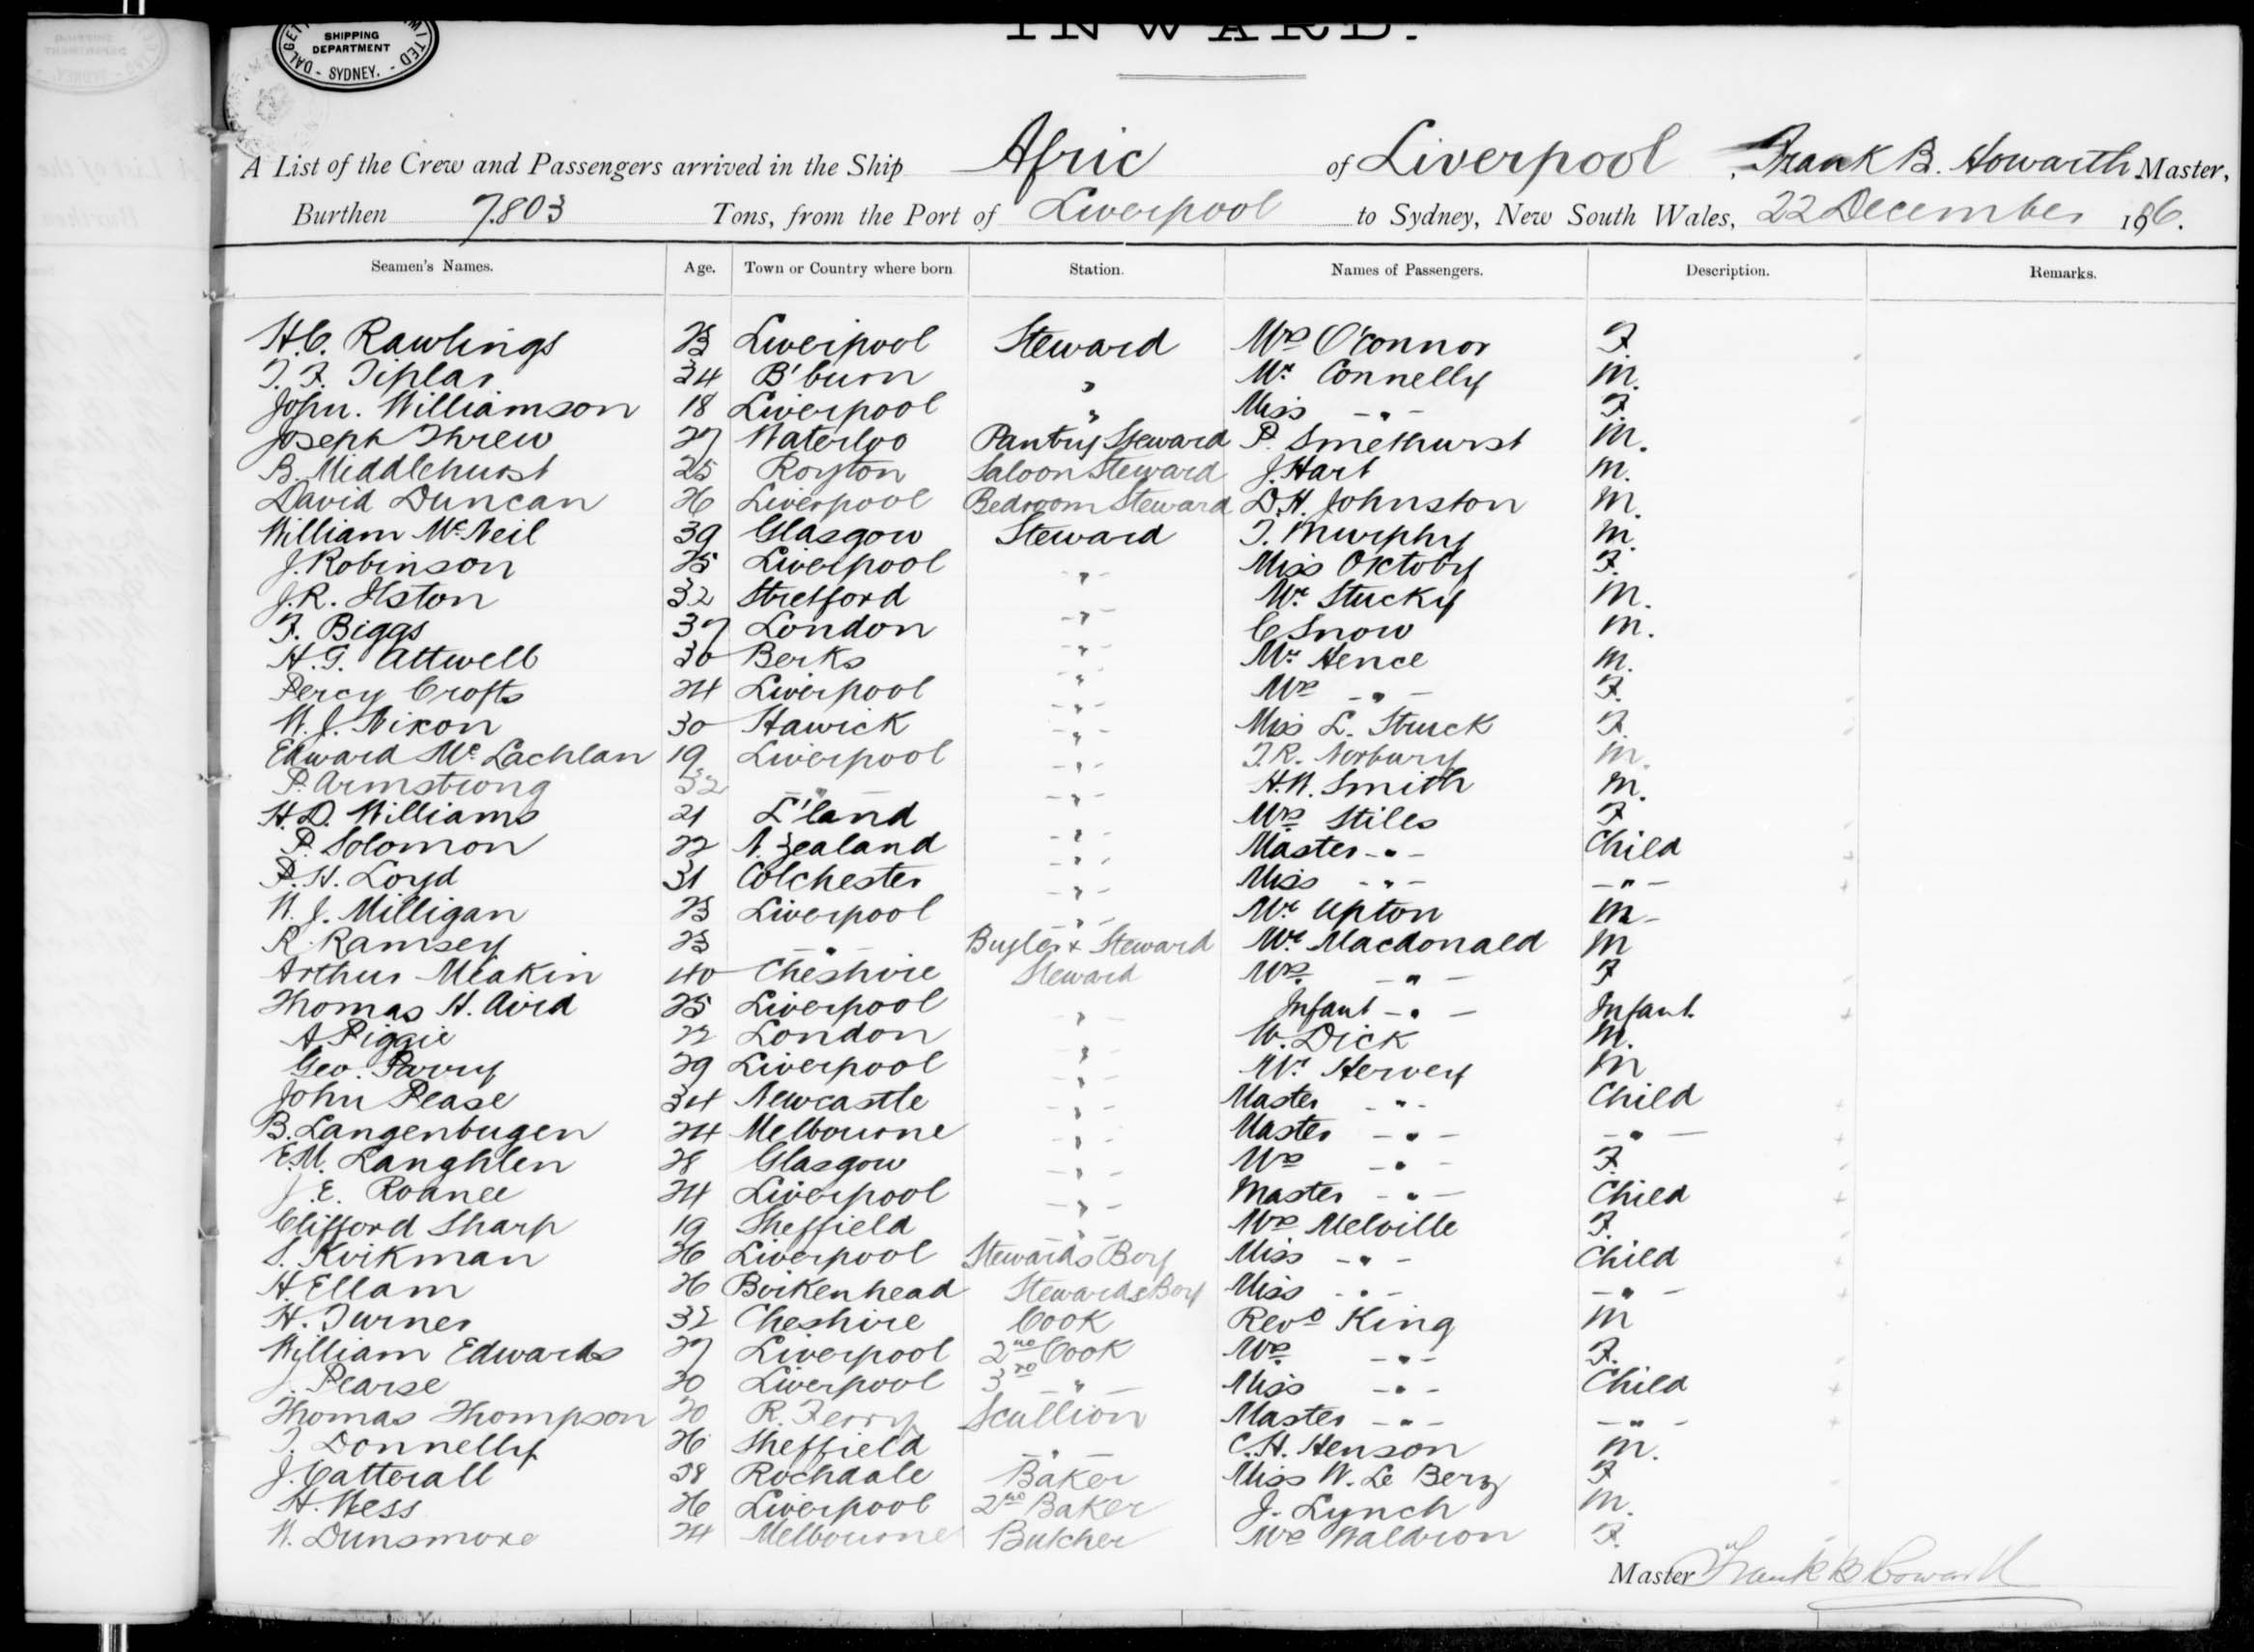 INWARD.
SHIPPING
DEPARTMENT
SYDNEY.
A List of the Crew and Passengers arrived in the Ship Afric of Liverpool, Frank B. Howarth Master,
Burthen 7.803 Tons, from the Port of Liverpool to Sydney, New South Wales, 22 December 196.
Seamen's Names. Age. Town or Country where born Station. Names of Passengers. Description. Remarks.
H.C. Rawlings 23 Liverpool Steward Mrs O'Connor F.
T. F. Tiplar 34 B'burn " Mr Connelly M.
John. Williamson 18 Liverpool " Miss -"- F.
Joseph Threw 27 Waterloo Pantry Steward P. Smethurst M.
B. Middlehurst 25 Royton Saloon Steward J. Hart M.
David Duncan 26 Liverpool Bedroom Steward D.H. Johnston M.
William McNeil 39 Glasgow Steward T. Murphy M.
J. Robinson 25 Liverpool -"- Miss Oktoby F.
J.R. Ilston 32 Stretford -"- Mr Stucky M.
F. Biggs 37 London -"- C Snow M.
H.G. Attwell 30 Berks -"- Mr Hence M.
Percy Crofts 24 Liverpool -"- Mrs -"- F.
W.J. Nixon 30 Hawick -"- Miss L. Struck F.
Edward McLachlan 19 Liverpool -"- T.R. Norbury M.
P. Armstrong 32 -"- -"- H.W. Smith M.
H.D. Williams 21 L'land -"- Mrs Stiles F
P. Solomon 22 N. Zealand -"- Master -"- Child
P.H. Loyd 31 Colchester -"- Miss -"- -"-
W.J. Milligan 23 Liverpool -"- Mr Upton M-
R. Ramsey 23 -"- Bugler & Steward Mr Macdonald M
Arthur Meakin 40 Cheshire Steward Mrs -"- F
Thomas H. Aird 25 Liverpool -"- Infant -"- Infant.
A. Piggie 22 London -"- W. Dick M.
Geo. Parry 29 Liverpool -"- Mr Hervey M
John Pease 34 Newcastle -"- Master -"- Child
B. Langenbugen 24 Melbourne -"- Master -"- -"-
E.M. Langhlen 28 Glasgow -"- Mrs -"- F.
J.E. Roanee 24 Liverpool -"- Master -"- Child
Clifford Sharp 19 Sheffield -"- Mrs Melville F.
S. Kirkman 26 Liverpool Stewards Boy Miss -"- Child
H Ellam 26 Birkenhead Stewards Boy Miss -"- -"-
H. Turner 32 Cheshire Cook Revd King M
William Edwards 27 Liverpool 2nd Cook Mrs -"- F.
J. Pearse 20 Liverpool 3rd -"- Miss -"- Child
Thomas Thompson 20 R. Ferry Scullion Master -"- -"-
T. Donnelly 26 Sheffield -"- C.H. Henson M.
J. Catterall 28 Rochdale Baker Miss W. Le Berz F
H. Wess 26 Liverpool 2nd Baker J. Lynch M.
W. Dunsmore 24 Melbourne Butcher Mrs Waldron F.
Master Frank B Howarth